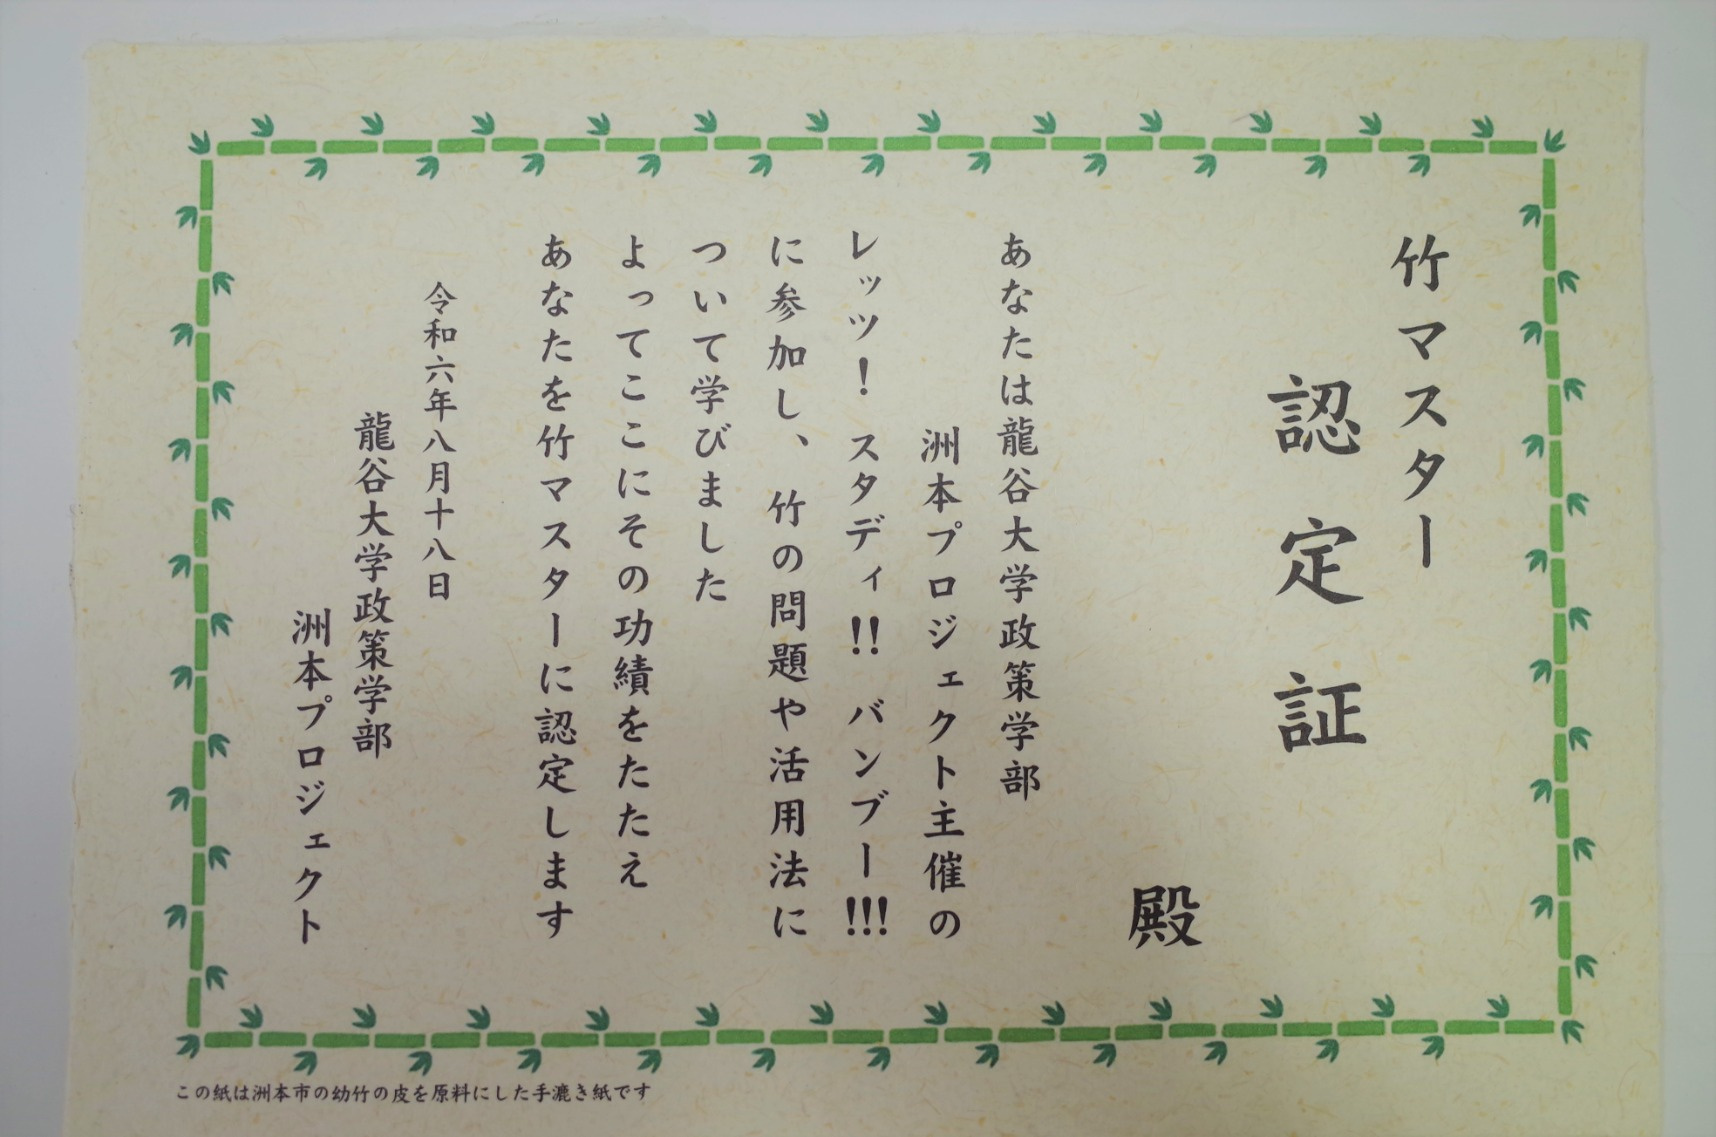 竹マスター
認定証
殿
あなたは龍谷大学政策学部
洲本プロジェクト主催の
レッツ！スタディ!!バンブー!!!
に参加し、竹の問題や活用法に
ついて学びました
よってここにその功績をたたえ
あなたを竹マスターに認定します
令和六年八月十八日
龍谷大学政策学部
洲本プロジェクト
この紙は洲本市の幼竹の皮を原料にした手漉き紙です